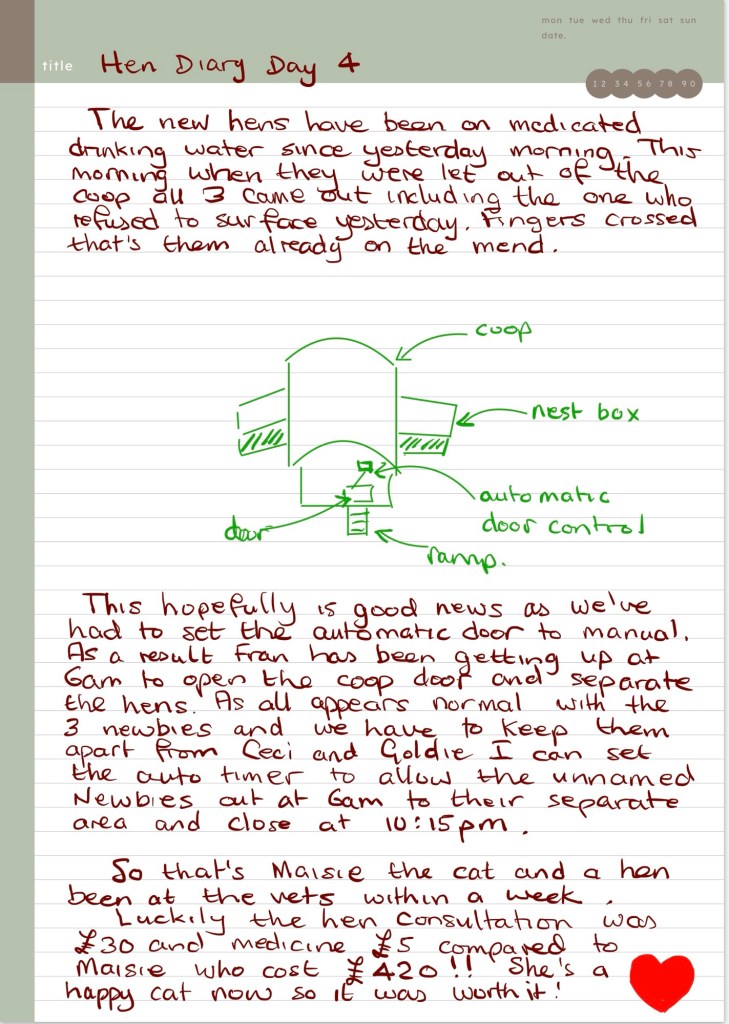 mon tue wed thu fri sat sun
date.
title Hen Diary Day 4
1 2 3 4 5 6 7 8 9 0
The new hens have been on medicated
drinking water since yesterday morning. This
morning when they were let out of the
coop all 3 came out including the one who
refused to surface yesterday. Fingers crossed
that's them already on the mend.
coop
nest box
automatic
door control
door
ramp.
This hopefully is good news as we've
had to set the automatic door to manual.
As a result Fran has been getting up at
6am to open the coop door and separate
the hens. As all appears normal with the
3 newbies and we have to keep them
apart from Ceci and Goldie I can set
the auto timer to allow the unnamed
Newbies out at 6am to their separate
area and close at 10:15pm.
So that's Maisie the cat and a hen
been at the vets within a week.
Luckily the hen consultation was
£30 and medicine £5 compared to
Maisie who cost £420!! She's a
happy cat now so it was worth it!